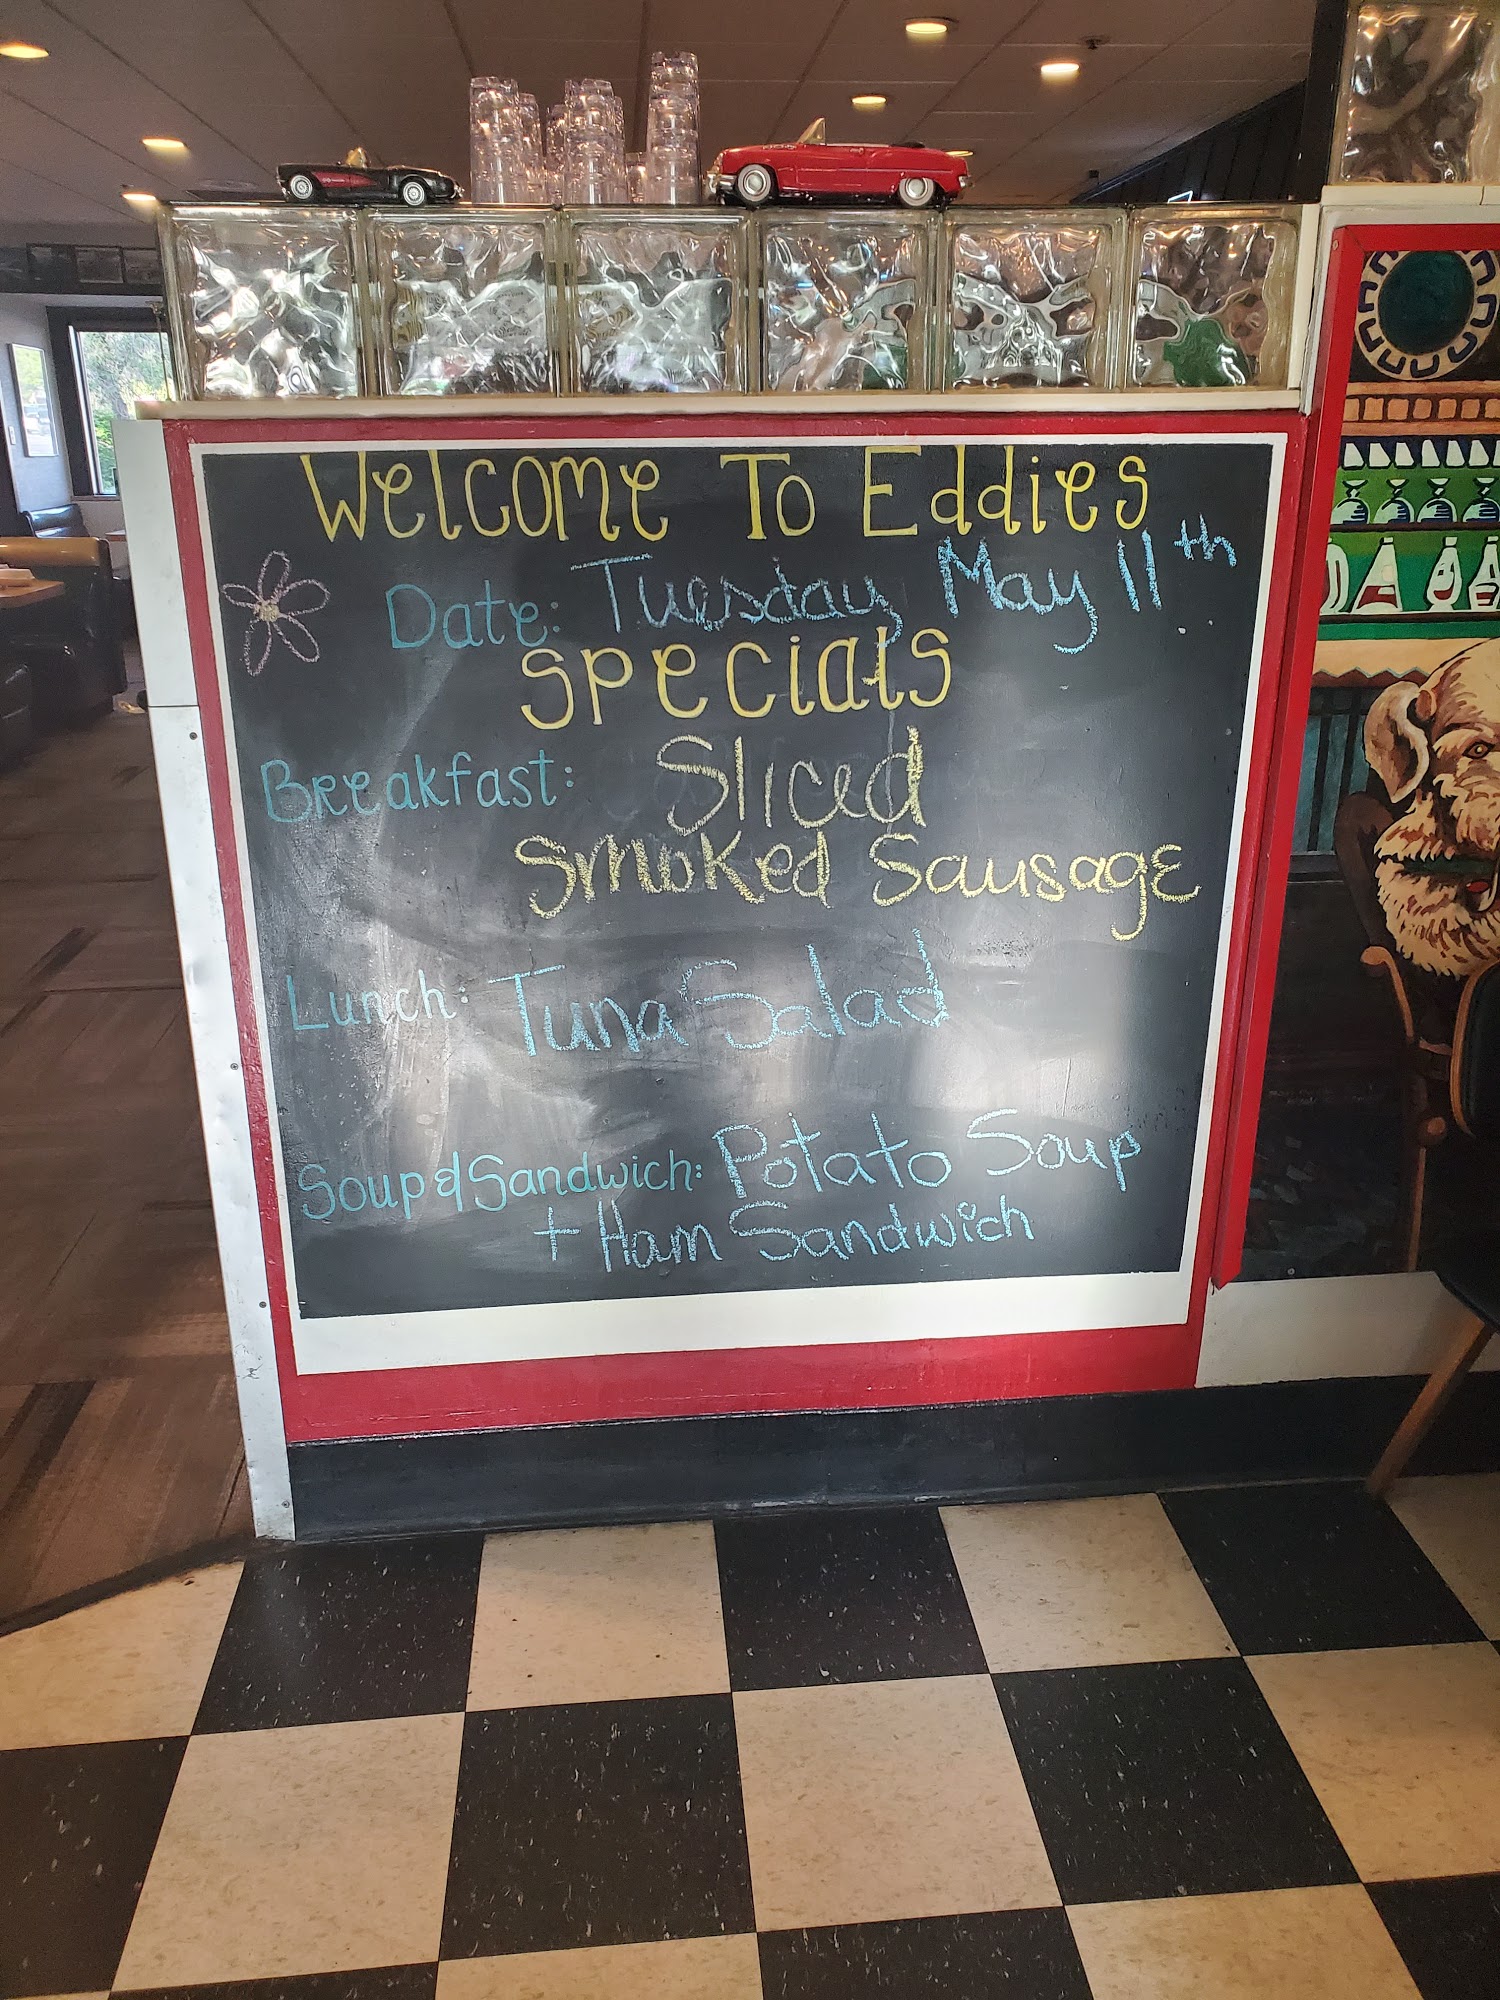 Welcome To Eddies
Date: Tuesday May 11th
Specials
Breakfast: Sliced
Smoked Sausage
Lunch: Tuna Salad
Soup & Sandwich: Potato Soup
+ Ham Sandwich